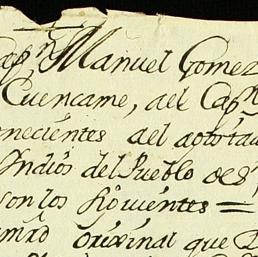 Capⁿ Manuel Gomez
Cuencame, del Capⁿ
necientes del
Indios del Pueblo de Sⁿ
son los sigᵘientes =
Orixinal que